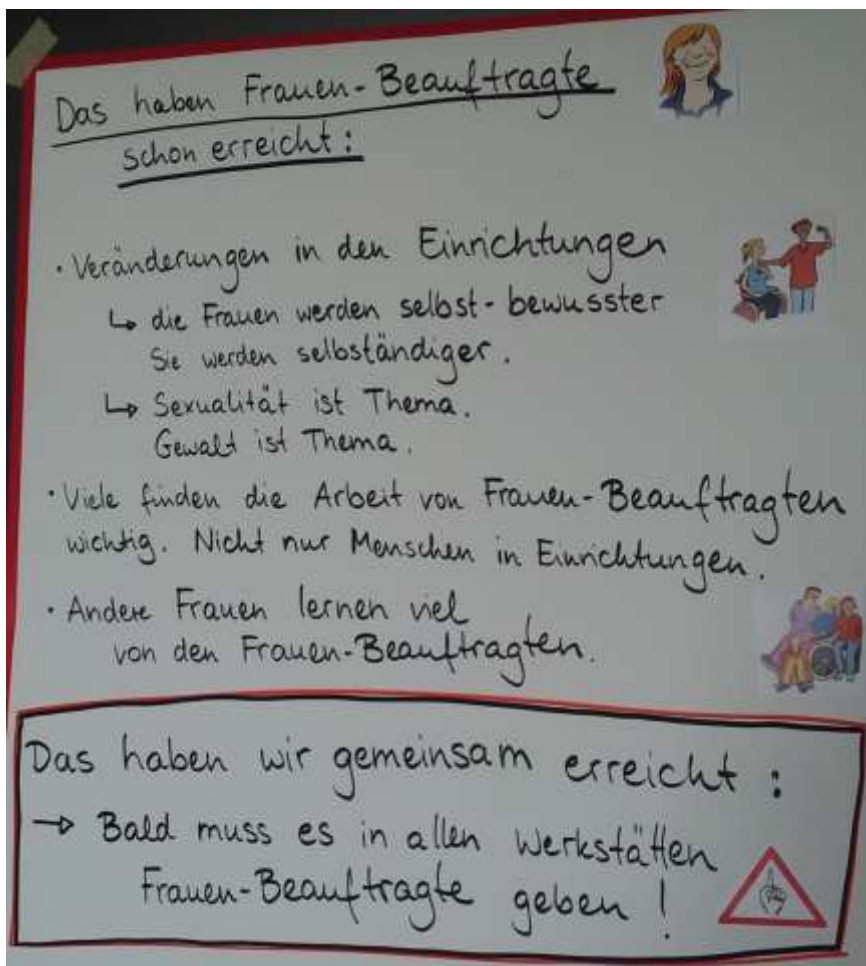 Das haben Frauen-Beauftragte
schon erreicht:
· Veränderungen in den Einrichtungen
↳ die Frauen werden selbst-bewusster
Sie werden selbständiger.
↳ Sexualität ist Thema.
Gewalt ist Thema.
· Viele finden die Arbeit von Frauen-Beauftragten
wichtig. Nicht nur Menschen in Einrichtungen.
· Andere Frauen lernen viel
von den Frauen-Beauftragten.
Das haben wir gemeinsam erreicht:
→ Bald muss es in allen Werkstätten
Frauen-Beauftragte geben!